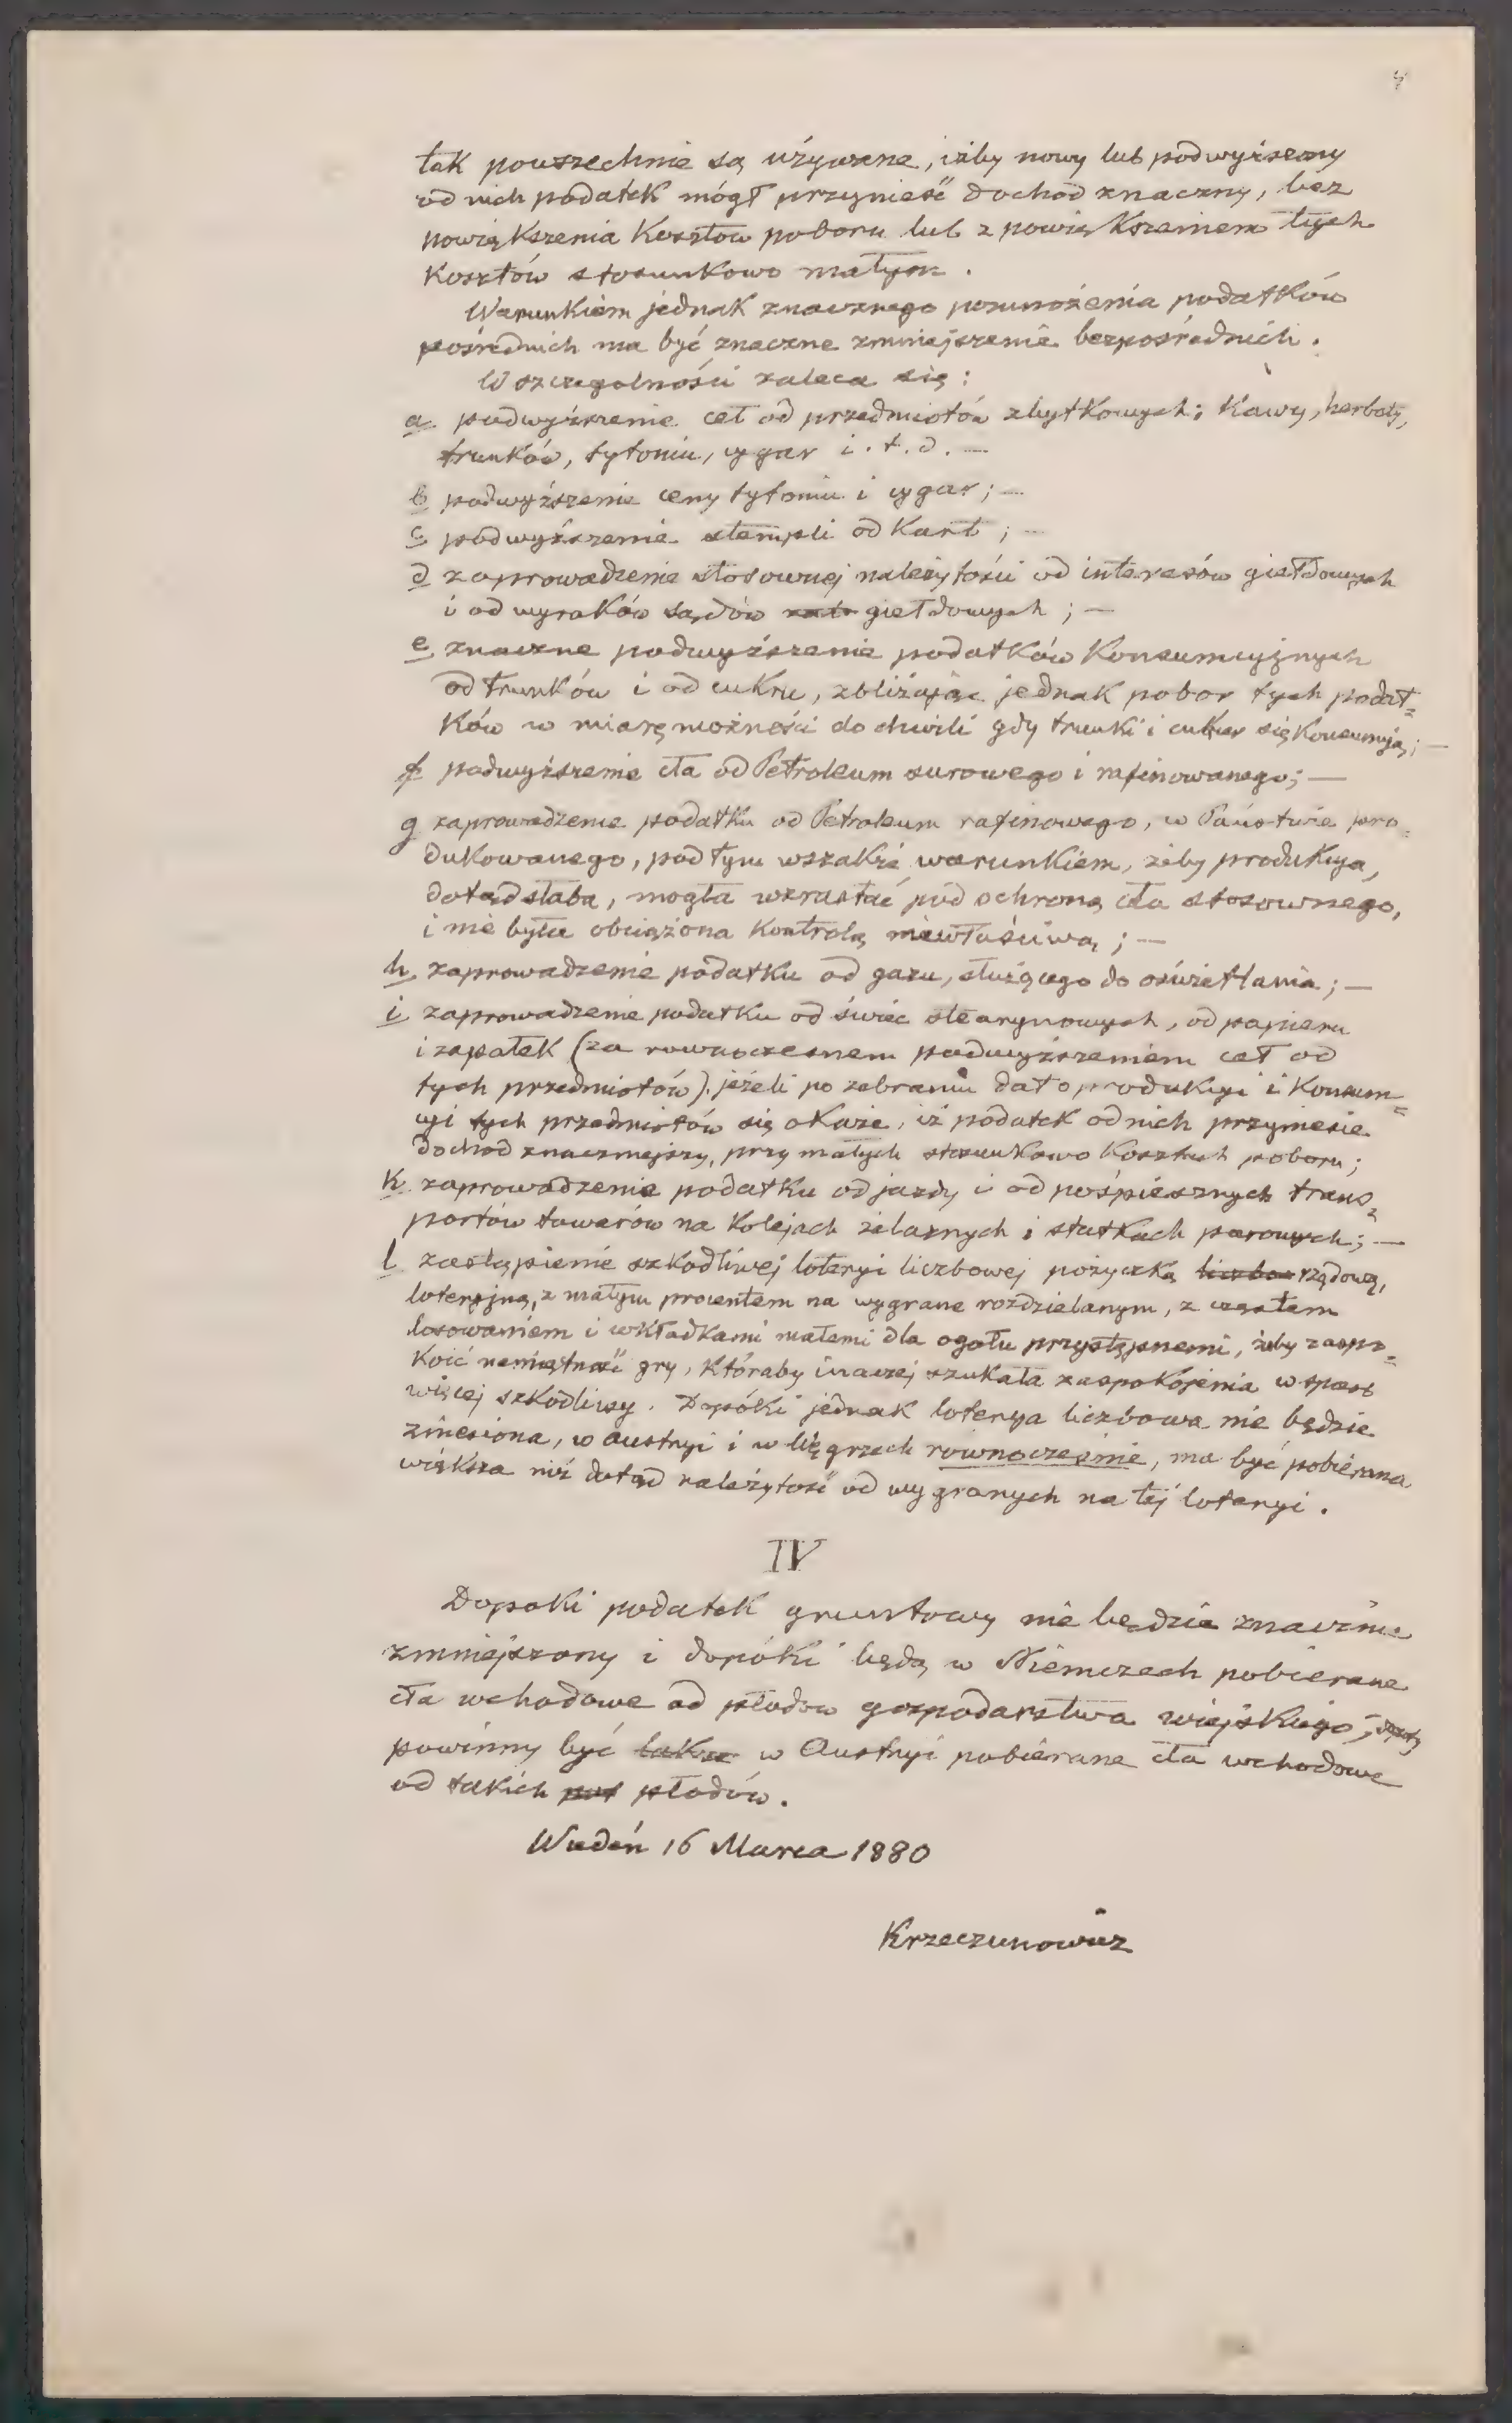 4
tak powszechnie są używane, iżby nowy lub podwyższony
od nich podatek mógł przynieść dochód znaczny, bez
powiększenia Kosztów poboru lub z powiększeniem tych
Kosztów stosunkowo małym.
Warunkiem jednak znacznego pomnożenia podatków
pośrednich ma być znaczne zmniejszenie bezpośrednich.
W szczególności zaleca się:
a podwyższenie ceł od przedmiotów zbytkowych; Kawy, herbaty,
trunków, tytoniu, cygar i.t.d. —
b podwyższenie ceny tytoniu i cygar; —
c podwyższenie stempli od Kart; —
d zaprowadzenie stosownej należytości od interesów giełdowych
i od wyroków sądów giełdowych; —
e znaczne podwyższenie podatków Konsumcyjnych
od trunków i od cukru, zbliżając jednak pobor tych podat=
ków w miarę możności do chwili gdy trunki i cukier się Konsumują; —
f podwyższenie cła od Petroleum surowego i rafinowanego; —
g zaprowadzenie podatku od Petroleum rafinowego, w Państwie pro=
dukowanego, pod tym wszakże warunkiem, żeby produkcya,
dotąd słaba, mogła wzrastać pod ochroną cła stosownego,
i nie była obciążona Kontrolą niewłaściwą; —
h zaprowadzenie podatku od gazu, służącego do oświetlania; —
i zaprowadzenie podatku od świec stearynowych, od papieru
i zapałek (za rownoczesnem podwyższeniem ceł od
tych przedmiotów), jeżeli po zebraniu dat o produkcyi i Konsum=
cyi tych przedmiotów się okaże, iż podatek od nich przyniesie
dochód znaczniejszy, przy małych stosunkowo Kosztach poboru;
k zaprowadzenie podatku od jazdy i od pośpiesznych trans=
portów towarów na Kolejach żelaznych i statkach parowych; —
l zastąpienie szkodliwej loteryi liczbowej pożyczką rządową,
loteryjną, z małym procentem na wygrane rozdzielanym, z częstem
losowaniem i wkładkami małemi dla ogołu przystępnemi, żeby zaspo=
Koić namiętność gry, Któraby inaczej szukała zaspokojenia w sposob
więcej szkodliwy. Dopóki jednak loterya liczbowa nie będzie
zniesiona, w Austryi i w Węgrzech rownocześnie, ma być pobierana
większa niż dotąd należytość od wygranych na tej loteryi.
IV
Dopoki podatek gruntowy nie będzie znacznie
zmniejszony i dopóki będą w Niemczech pobierane
cła wchodowe od płodow gospodarstwa wiejskiego,
powinny być w Austryi pobierane cła wchodowe
od takich płodów.
Wiedeń 16 Marca 1880
Krzeczunowicz